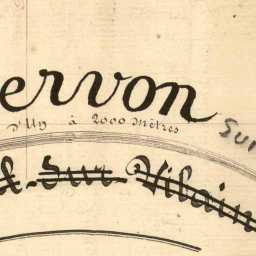 ervon
d'Uy à 2000 Mètres
Sur
sur Vilain